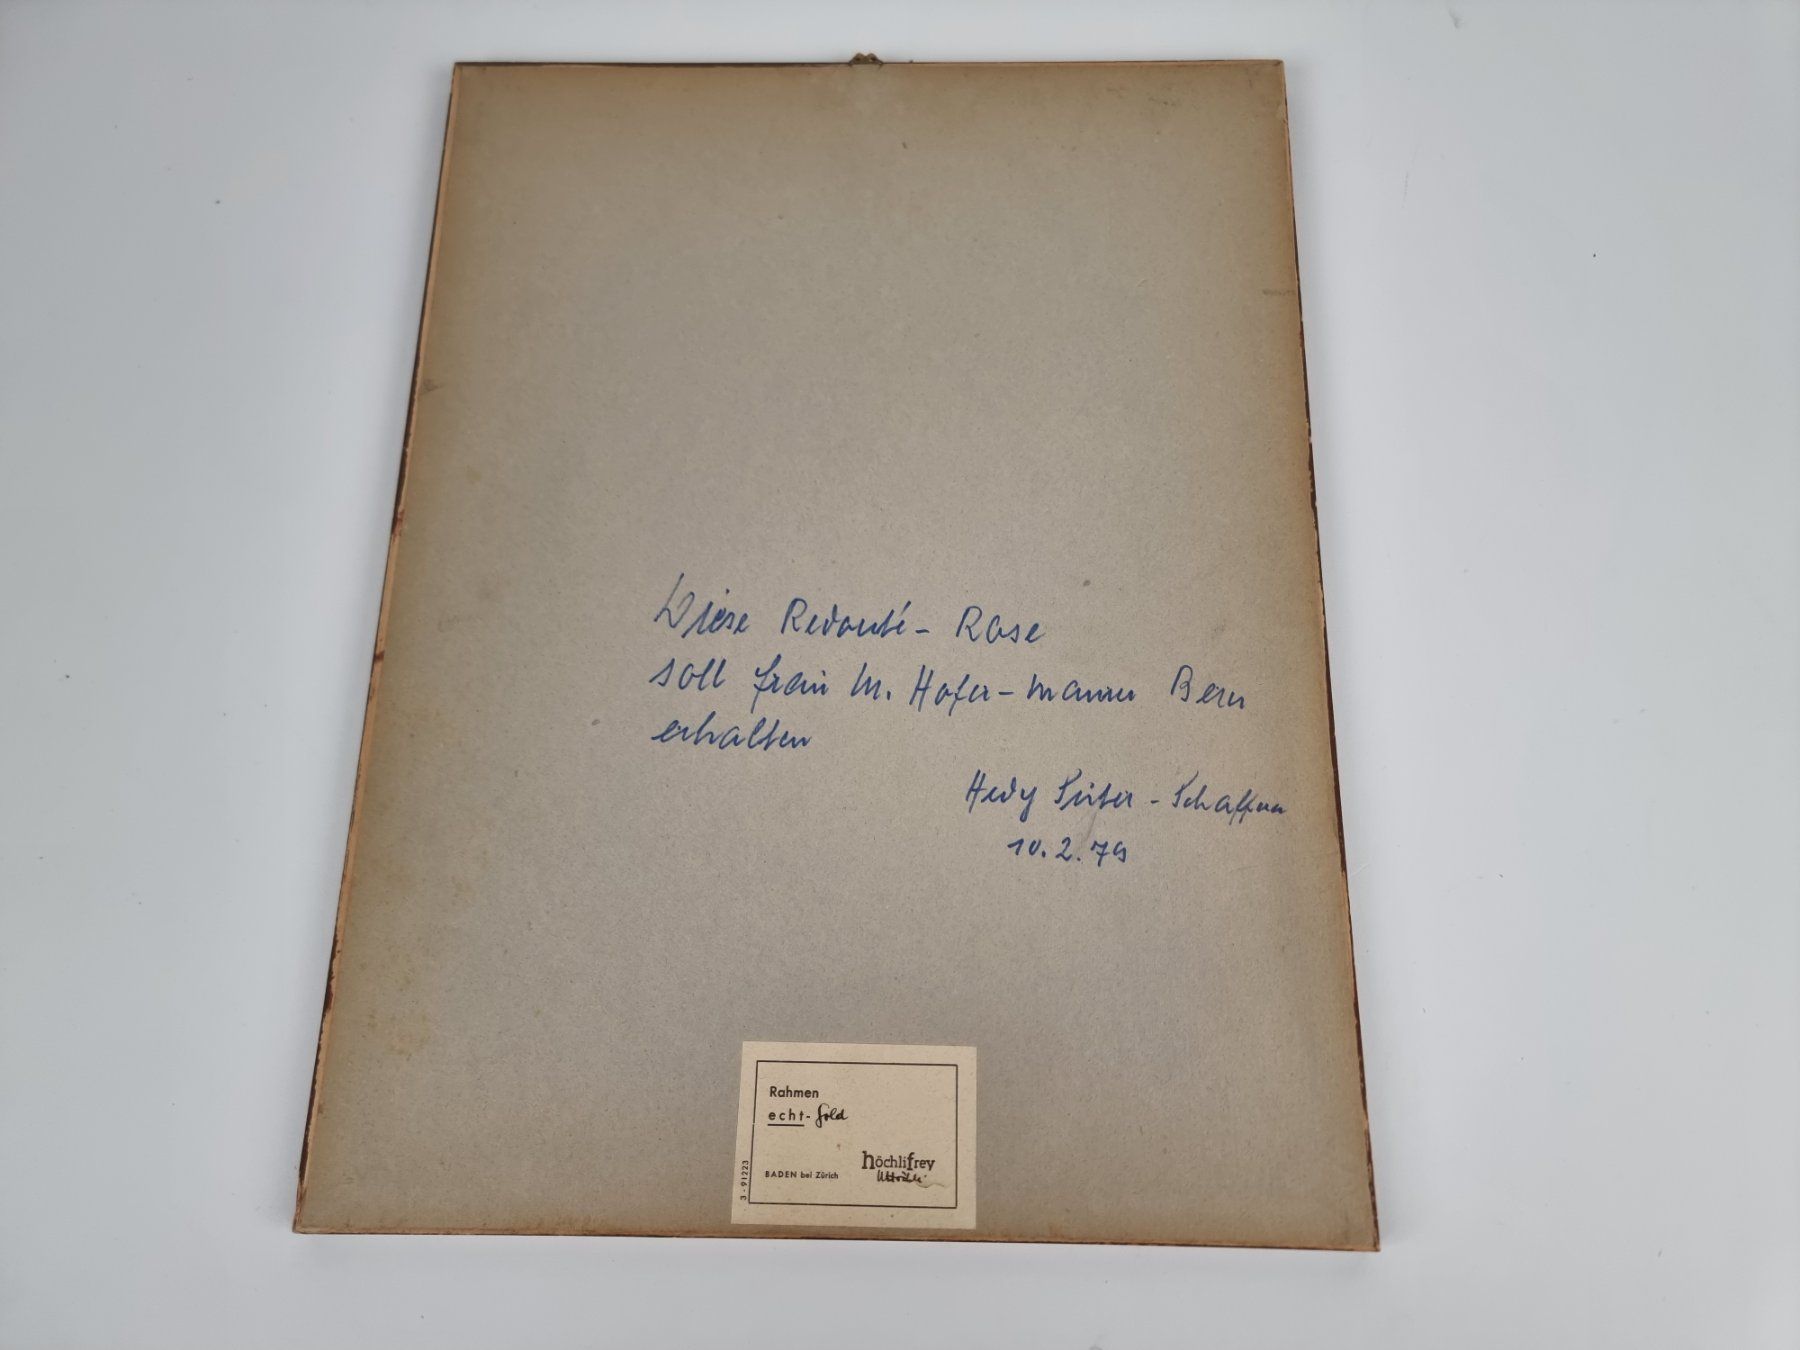 Diese Redouté - Rose
soll Frau M. Hofer - Mann Bern
erhalten
Hedy Suter - Schaffner
10.2.79
Rahmen
echt- Gold
höchlifrey
BADEN bei Zürich
3 - 91223